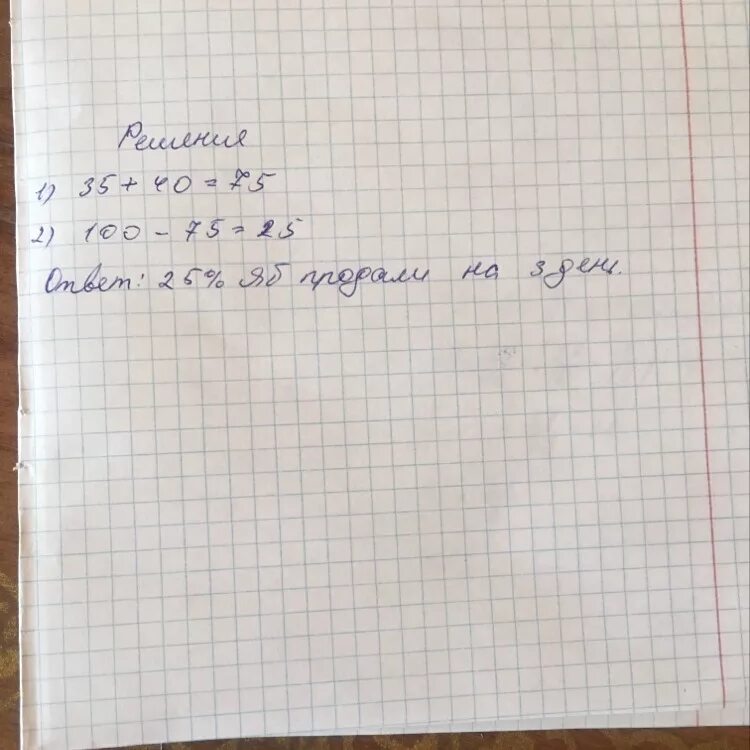 Решения
1) 35 + 40 = 75
2) 100 - 75 = 25
Ответ: 25% яб продали на 3 день.